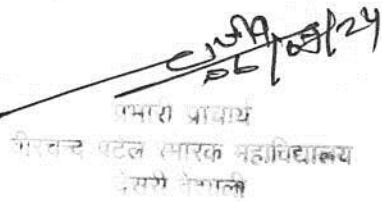 06/09/24
प्रभारी प्राचार्य
वीरचन्द पटेल स्मारक महाविद्यालय
देसरी वैशाली